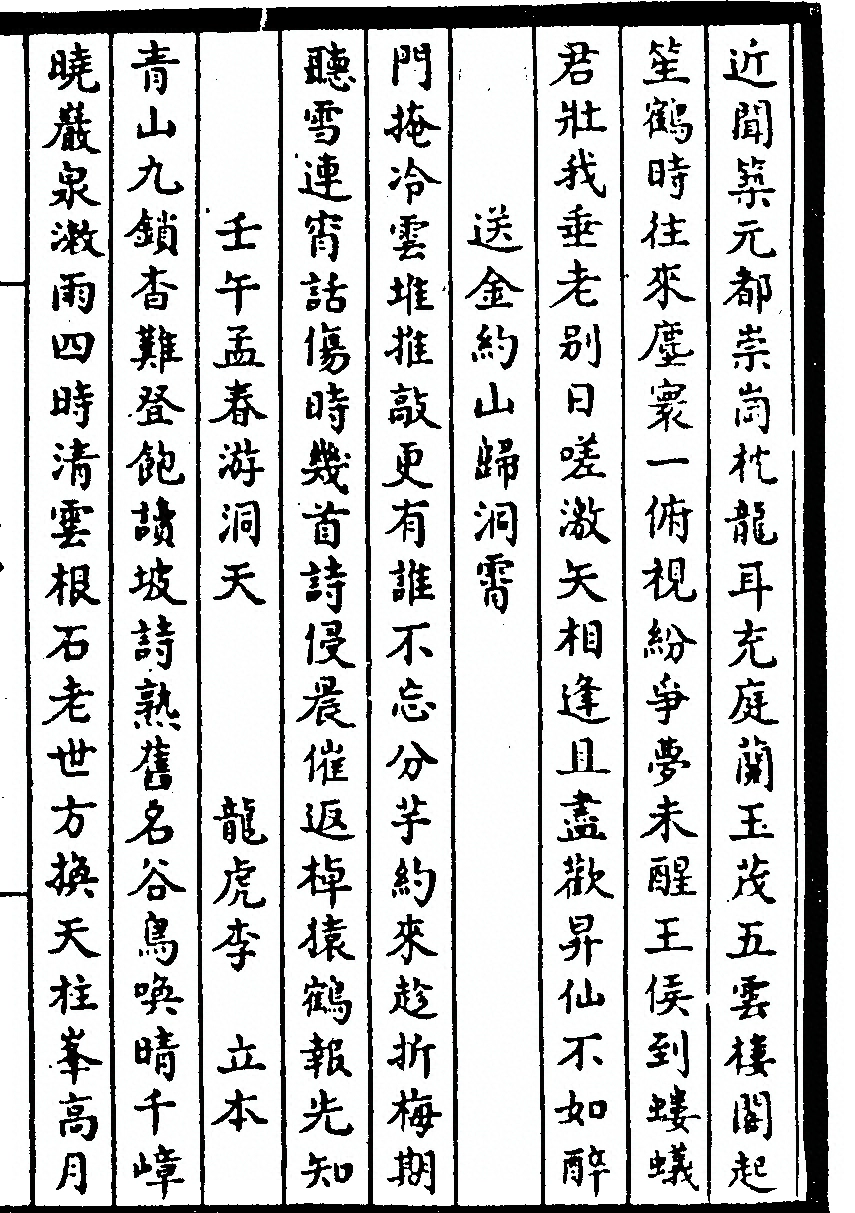 近聞築元都崇岡枕龍耳充庭蘭玉茂五雲樓閣起
笙鶴時往來塵寰一俯視紛爭夢未醒王侯到螻蟻
君壯我垂老别日嗟激矢相逢且盡歡昇仙不如醉
送金約山歸洞霄
門掩冷雲堆推敲更有誰不忘分芋約來趁折梅期
聽雪連宵話傷時幾首詩侵晨催返棹猿鶴報先知
壬午孟春游洞天 龍虎李 立本
青山九鎖杳難登飽讀坡詩熟舊名谷鳥喚晴千嶂
曉巖泉漱雨四時清雲根石老世方換天柱峯高月